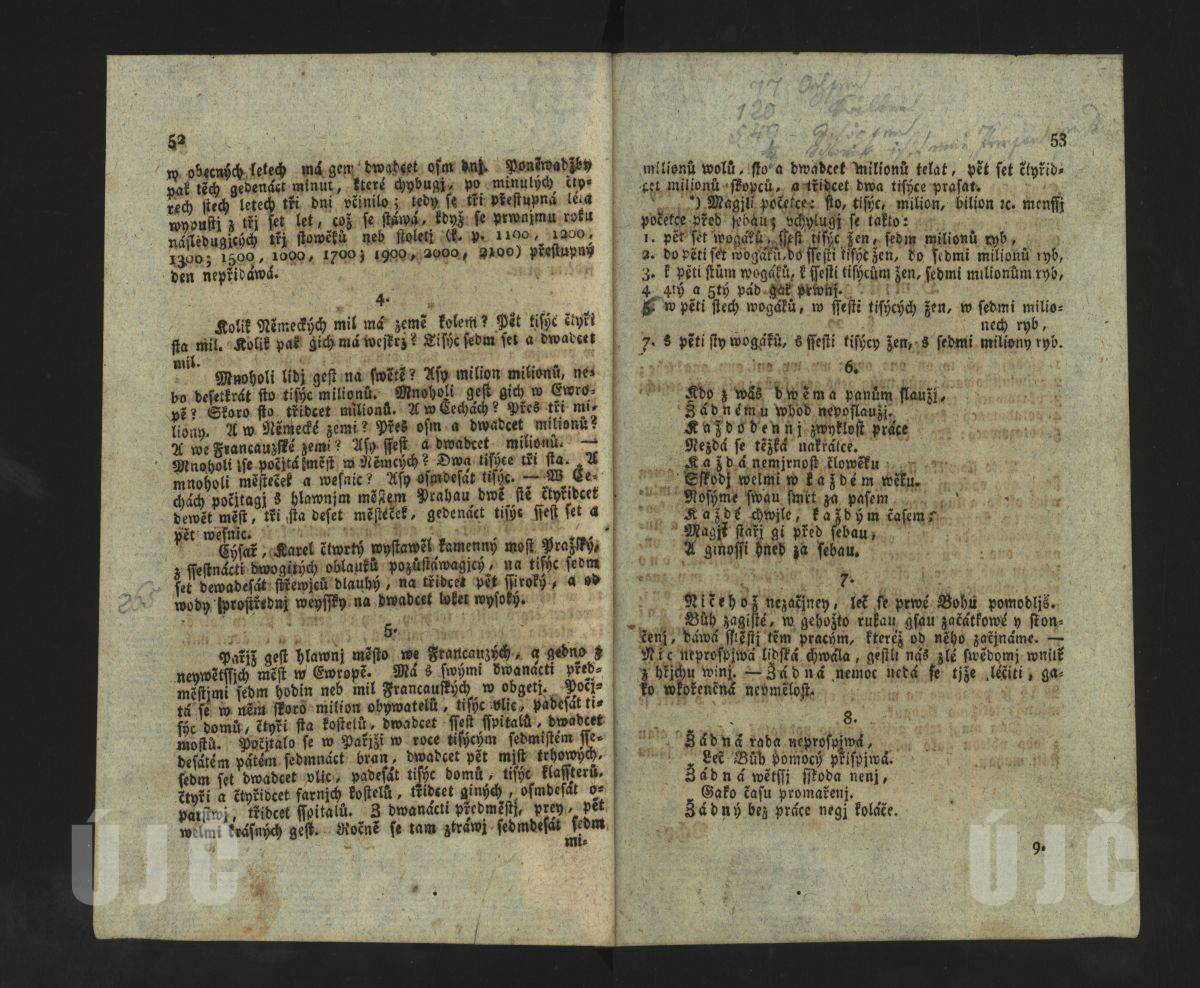 52
w obecných letech má gen dwadcet osm dnj. Poněwadžby
pak těch gedenáct minut, které chybugj, po minulých čty-
rech stech letech tři dni včinilo; tedy se tři přestupná léta
wypustj z třj set let, což se stáwá, když se prwnjmu roku
následugjcých třj stowěků neb stoletj (k. p. 1100, 1200,
1300; 1500, 1600, 1700; 1900, 2000, 2100) přestupný
den nepřidáwá.
4.
Kolik Německých mil má země kolem? Pět tisýc čtyři
sta mil. Kolik pak gich má weskrz? Tisýc sedm set a dwadcet
mil.
Mnoholi lidj gest na swětě? Asy milion milionů, ne-
bo desetkrát sto tisýc milionů. Mnoholi gest gich w Ewro-
pě? Skoro sto třidcet milionů. A w Čechách? Přes tři mi-
liony. A w Německé zemi? Přes osm a dwadcet milionů?
A we Francauzské zemi? Asy ssest a dwadcet milionů. —
Mnoholi se počjtá měst w Němcých? Dwa tisýce tři sta. A
mnoholi městeček a wesnic? Asy osmdesát tisýc. — W Če-
chách počjtagj s hlawnjm městem Prahau dwě stě čtyřidcet
dewět měst, tři sta deset městeček, gedenáct tisýc ssest set a
pět wesnic.
Cýsař, Karel čtwrtý wystawěl kamenný most Pražský,
z ssestnácti dwogitých oblauků pozůstáwagjcý, na tisýc sedm
set dewadesát střewjců dlauhý, na třidcet pět ssiroký, a od
wody prostřednj weyssky na dwadcet loket wysoký.
265
5.
Pařjž gest hlawnj město we Francauzých, a gedno z
neywětssjch měst w Ewropě. Má s swými dwanácti před-
městjmi sedm hodin neb mil Francauských w obgetj. Počj-
tá se w něm skoro milion obywatelů, tisýc vlic, padesát ti-
sýc domů, čtyři sta kostelů, dwadcet ssest sspitalů, dwadcet
mostů. Počjtalo se w Pařjži w roce tisýcým sedmistém sse-
desátém pátém sedmnáct bran, dwadcet pět mjst trhowých,
sedm set dwadcet vlic, padesát tisýc domů, tisýc klassterů,
čtyři a čtyřidcet farnjch kostelů, třidcet giných, osmdesát o-
patstwj, třidcet sspitalů. Z dwanácti předměstj, prey, pět
welmi krásných gest. Ročně se tam ztráwj sedmdesát sedm
mi-
77
120
549
53
milionů wolů, sto a dwadcet milionů telat, pět set čtyřid-
cet milionů skopců, a třidcet dwa tisýce prasat.
*) Magjli početce: sto, tisýc, milion, bilion ꝛc. menssj
početce před sebau; vchylugj se takto:
1. pět set wogáků, ssest tisýc žen, sedm milionů ryb,
2. do pěti set wogáků, do ssesti tisýc žen, do sedmi milionů ryb,
3. k pěti stům wogáků, k ssesti tisýcům žen, sedmi milionům ryb,
4 4tý a 5tý pád gak prwnj.
6. w pěti stech wogáků, w ssesti tisýcých žen, w sedmi milio-
nech ryb,
7. s pěti sty wogáků, s ssesti tisýcy žen, s sedmi miliony ryb.
6.
Kdo z wás dwěma panům slaužj,
Žádnému whod neposlaužj.
Každodennj zwyklost práce
Nezdá se těžká nakrátce.
Každá nemjrnost člowěku
Sskodj welmi w každém wěku.
Nosýme swau smrt za pasem
Každé chwjle, každým časem;
Magjť stařj gi před sebau,
A ginossi hned za sebau.
7.
Ničehož nezačjney, leč se prwé Bohu pomodljš.
Bůh zagisté, w gehožto rukau gsau začátkowé y skon-
čenj, dáwá sstěstj těm pracým, kteréž od něho začjnáme. —
Nic neprospjwá lidská chwála, gestli nás zlé swědomj wnitř
z hřjchu winj. — Žádná nemoc nedá se tjže léčiti, ga-
ko wkořeněná neumělost.
8.
Žádná rada neprospjwá,
Leč Bůh pomocý přispjwá.
Žádná wětssj sskoda nenj,
Gako času promařenj.
Žádný bez práce negj koláče.
9.
ÚJČ
ÚJČ